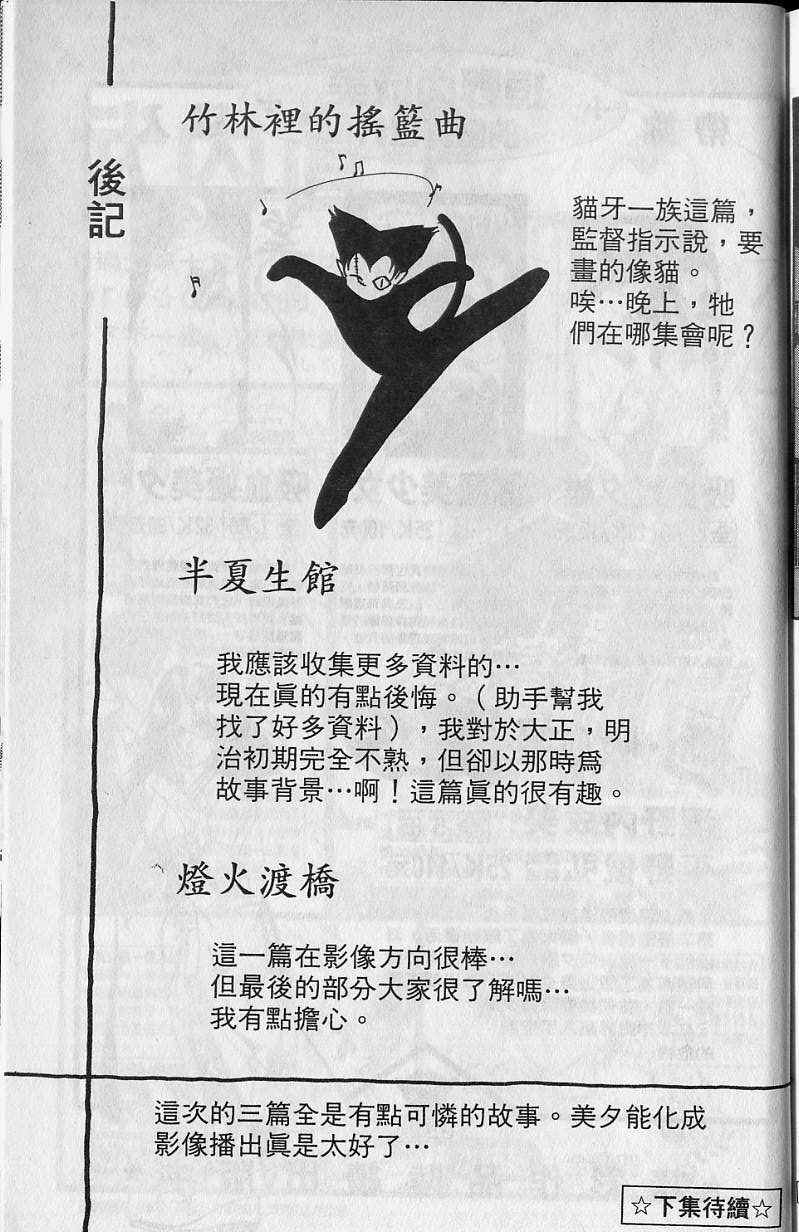 後記
竹林裡的搖籃曲
貓牙一族這篇，
監督指示說，要
畫的像貓。
唉…晚上，牠
們在哪集會呢？
半夏生館
我應該收集更多資料的…
現在眞的有點後悔。（助手幫我
找了好多資料），我對於大正，明
治初期完全不熟，但卻以那時爲
故事背景…啊！這篇眞的很有趣。
燈火渡橋
這一篇在影像方向很棒…
但最後的部分大家很了解嗎…
我有點擔心。
這次的三篇全是有點可憐的故事。美夕能化成
影像播出眞是太好了…
☆下集待續☆